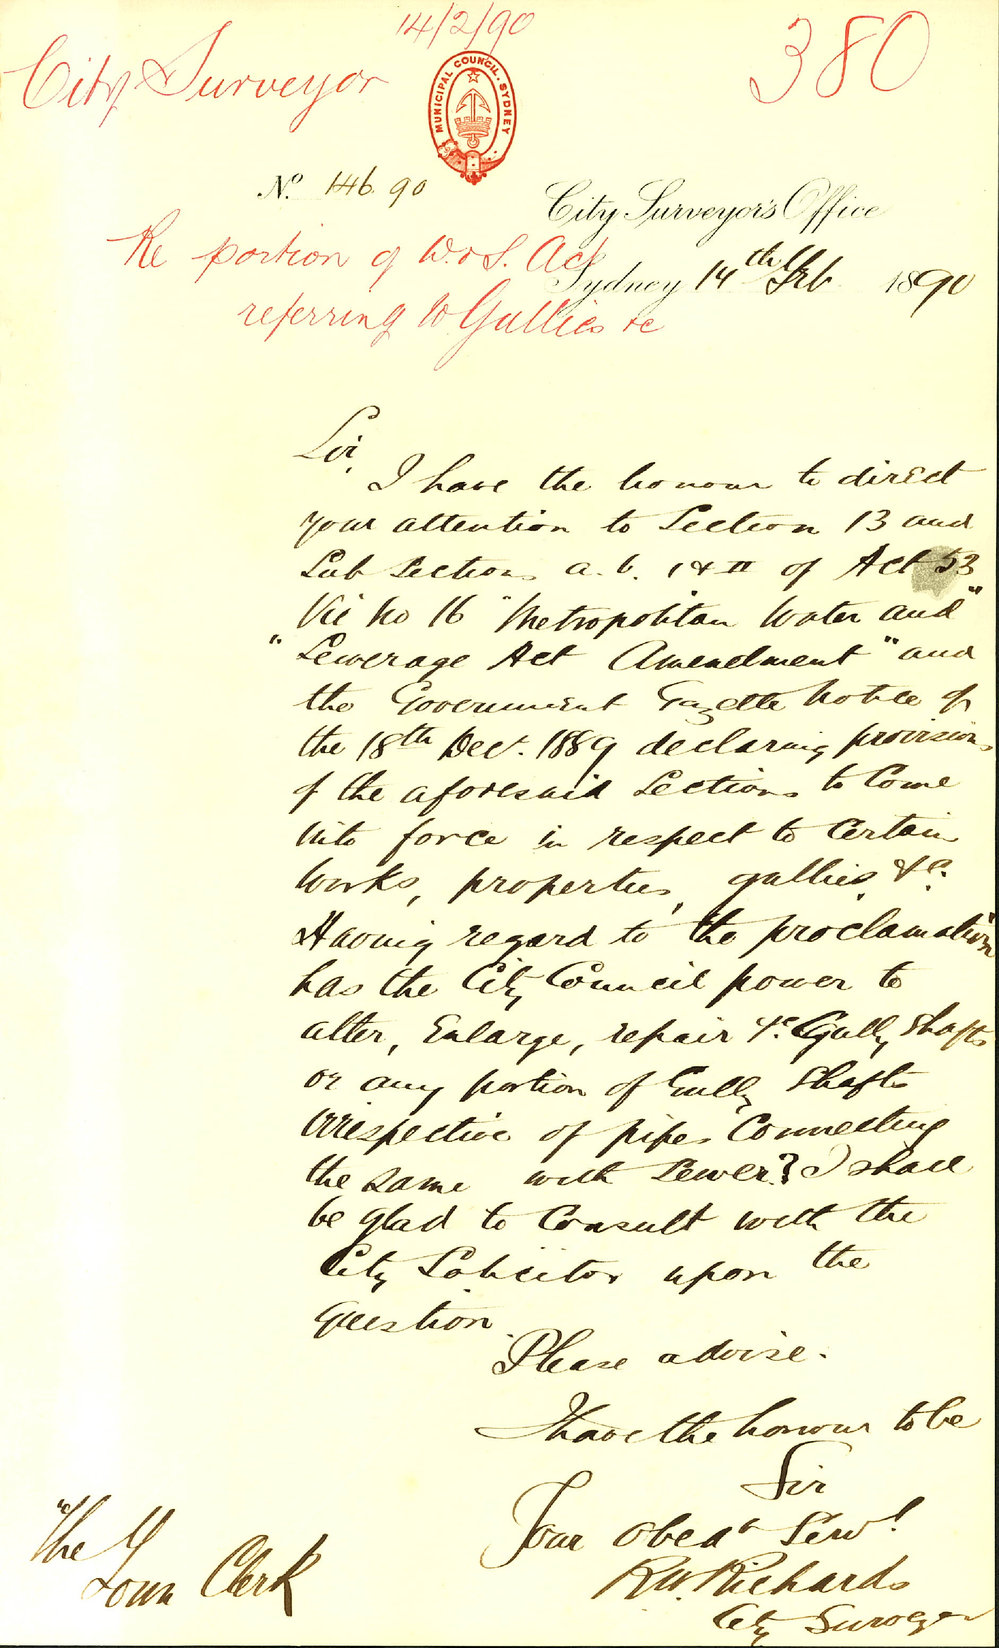 14/2/90
City Surveyor
380
MUNICIPAL COUNCIL. SYDNEY
No. 146. 90
City Surveyor's Office
Re portion of W. & S. Act
Sydney 14th Feb 1890
referring to Gullies &c
Sir,
I have the honour to direct
your attention to Section 13 and
Sub Sections a. b. I & II of Act 53
Vic No 16 "Metropolitan Water and"
"Sewerage Act Amendment" and
the Government Gazette Notice of
the 18th Decr. 1889 declaring provisions
of the aforesaid Sections to Come
into force in respect to Certain
Works, properties, gullies, &c.
Having regard to the proclamation
has the City Council power to
alter, Enlarge, repair &c. Gully Shafts
or any portion of Gully Shafts
irrespective of pipes Connecting
the same with Sewer? I shall
be glad to Consult with the
City Solicitor upon the
question.
Please advise.
I have the honour to be
Sir
Your Obedt Servt
R.W. Richards
City Surveyor
The
Town Clerk